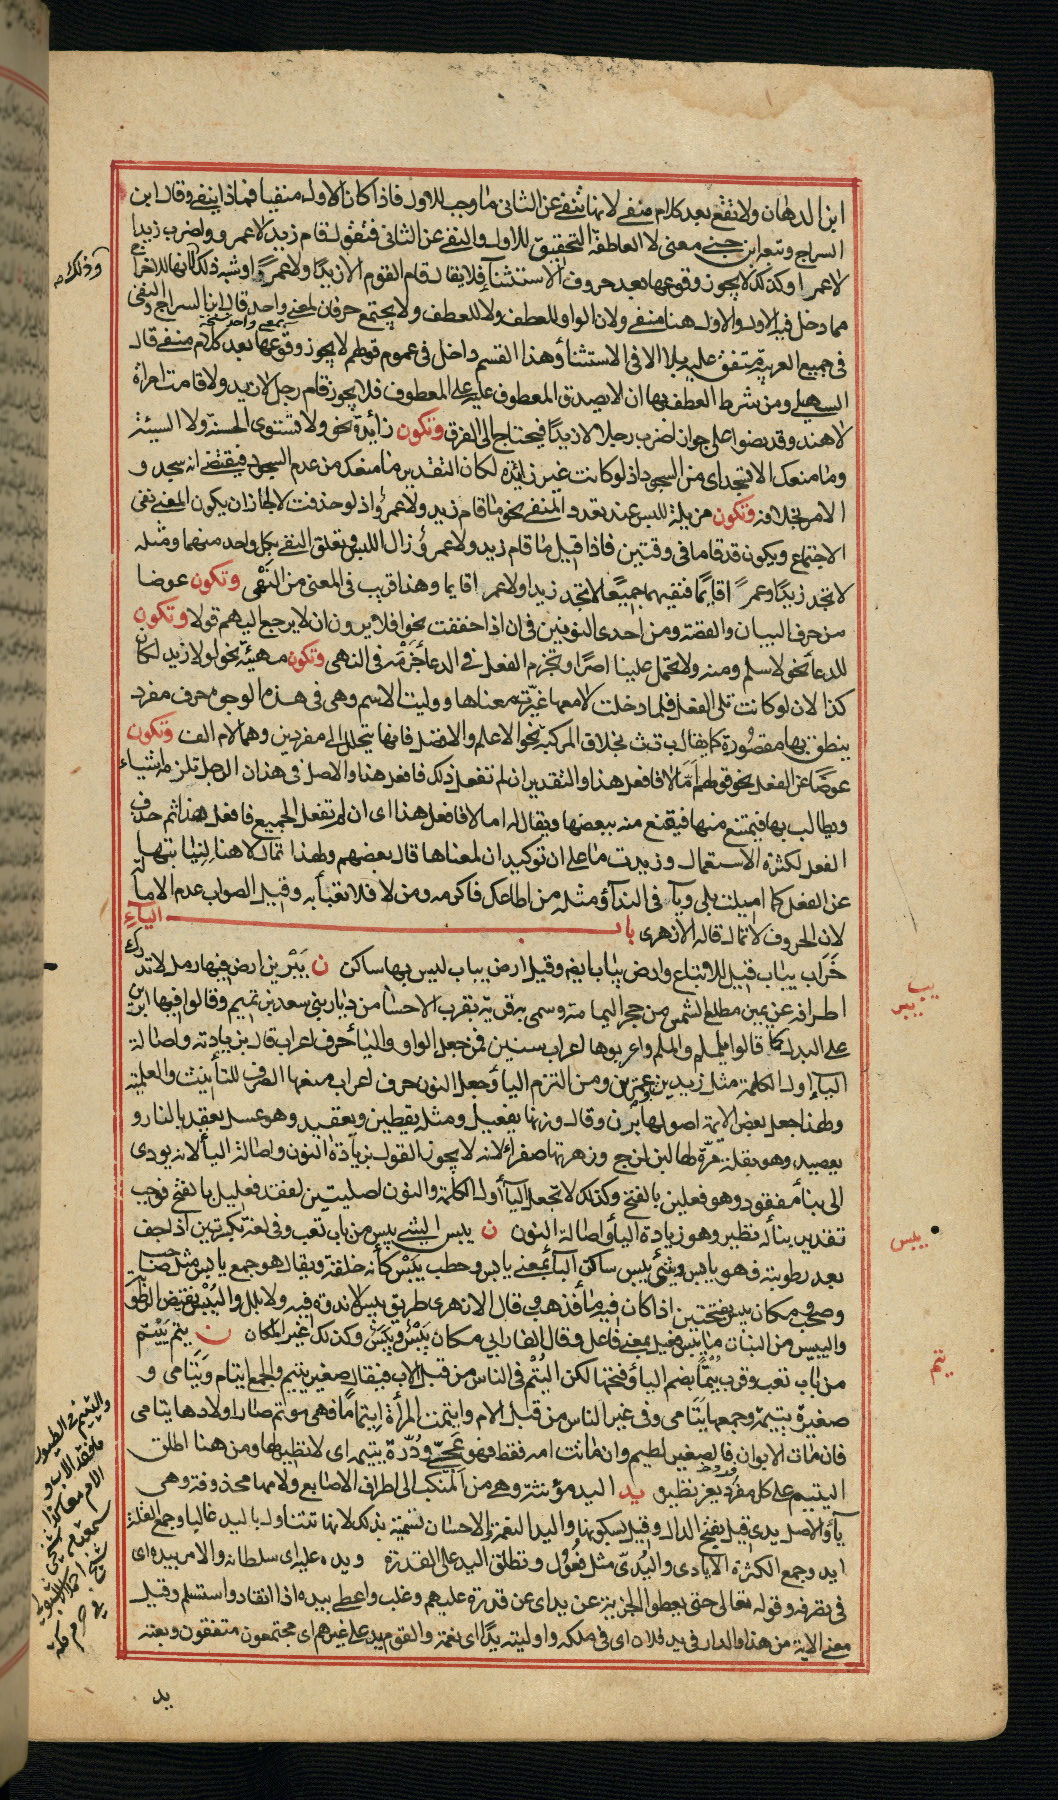 ابن الدهان ولا تقع بعد كلام منفي لانها تنفي عن الثاني ما وجب للاول فاذا كان الاول منفيا فماذا ينفي وقال ابن
السراج وتبعه ابن جني معنى لا العاطفة التحقيق للاول والنفي عن الثاني فتقول قام زيد لا عمرو واضرب زيدا
لا عمرا وكذلك لا يجوز وقوعها بعد حروف الاستثناء فلا يقال قام القوم الا زيدا ولا عمرا وشبه ذلك لانها للاخراج
مما دخل فيه الاول والاول هنا منفي ولان الواو للعطف ولا للعطف ولا يجتمع حرفان بمعنى واحد قال ابن السراج والنفي
في جميع العربية متفق عليه بلا الا في الاستثناء وهذا القسم داخل في عموم قولهم لا يجوز وقوعها بعد كلام منفي قال
السهيلي ومن شرط العطف بها ان لا يصدق المعطوف عليه على المعطوف فلا يجوز قام رجل لا زيد ولا قامت امراة
لا هند وقد نصوا على جواز اضرب رجلا لا زيدا فيحتاج الى الفرق وتكون زائدة نحو ولا تستوى الحسنة ولا السيئة
وما منعك الا تسجد اى من السجود اذ لو كانت غير زائدة لكان التقدير ما منعك من عدم السجود فيقتضي انه سجد و
الامر بخلافه وتكون مزيلة للبس عند تعدد المنفي نحو ما قام زيد ولا عمرو اذ لو حذفت لا لجاز ان يكون المعنى نفى
الاجتماع ويكون قد قاما في وقتين فاذا قيل ما قام زيد ولا عمرو زال اللبس وتعلق النفي بكل واحد منهما ومثله
لا تجد زيدا وعمرا قايما فنفيهما جميعا لا تجد زيدا ولا عمرا قايما وهذا قريب في المعنى من النهى وتكون عوضا
من حرف البيان والقصة ومن احدى النونين في ان اذا خففت نحو افلا يرون ان لا يرجع اليهم قولا وتكون
للدعاء نحو لا سلم ومنه ولا تحمل علينا اصرا وتجزم الفعل في الدعاء جزمه في النهى وتكون مهيئة نحو لولا زيد لكان
كذا لان لو كانت تلى الفعل فلما دخلت لا معها غيرت معناها ووليت الاسم وهى في هذه الوجوه حرف مفرد
ينطق بها مقصورة كما يقال ب ت ث بخلاف المركبة نحو الاعلم والافضل فانها تتحلل الى مفردين وهما لام الف وتكون
عوضا عن الفعل نحو قولهم اما لا فافعل هذا والتقدير ان لم تفعل ذلك فافعل هذا والاصل في هذا ان الرجل تلزمه اشياء
ويطالب بها فيمتنع منها فيقنع منه ببعضها ويقال له اما لا فافعل هذا اى ان لم تفعل الجميع فافعل هذا ثم حذف
الفعل لكثرة الاستعمال وزيدت ما على ان توكيدا لمعناها قال بعضهم ولهذا تمال لا هنا لنيابتها
عن الفعل كما اميلت بلى ويا في النداء ومثله من اطاعك فاكرمه ومن لا فلا تعبأ به وقيل الصواب عدم الامالة
لان الحروف لا تمال قاله الازهرى باب الياء
خراب يباب قيل للاتباع وارض يباب ايضا وقيل ارض يباب ليس بها ساكن ن يبرين ارض فيها رمل لا تدرك
اطرافه عن يمين مطلع الشمس من حجر اليمامة وسمى به قرية بقرب الاحساء من ديار بني سعد بن تميم وقالوا فيها ابرين
على البدل كما قالوا يلملم والملم واعربوها اعراب سنين فمن جعل الواو والياء حرف اعراب قال بزيادته واصالة
الياء اول الكلمة مثل زيدين وعمرين ومن التزم الياء وجعل النون حرف اعراب منعها الصرف للتأنيث والعلمية
ولهذا جعل بعض الايمة اصولها برن وقال وزنها يفعيل ومثله يقطين ويعقيد وهو عسل يعقد بالنار و
يعضيد وهو بقلة مرة لها لبن لزج وزهرتها صفراء لانه لا يجوز القول بزيادة النون واصالة الياء لانه يودى
الى بناء مفقود وهو فعلين بالفتح وكذلك لا تجعل الياء اول الكلمة والنون اصليتين لفقد فعليل بالفتح فوجب
تقدير بناء له نظير وهو زيادة الياء واصالة النون ن يبس الشيء ييبس من باب تعب وفي لغة بكسرتين اذا جف
بعد رطوبته فهو يابس وشيء يبس ساكن الباء بمعنى يابس وحطب يبس كأنه خلقة ويقال هو جمع يابس مثل صاحب
وصحب ومكان يبس بفتحتين اذا كان فيه ماء فذهب وقال الازهرى طريق يبس لا ندوة فيه ولا بلل واليبس نقيض الرطوبة
واليبيس من النبات ما يبس فعيل بمعنى فاعل وقال الفارابي مكان يبس ويبس وكذلك غير المكان ن يتم ييتم
من باب تعب وقرب يتما بضم الياء وفتحها لكن اليتم في الناس من قبل الاب فيقال صغير يتيم والجمع ايتام ويتامى و
صغيرة يتيمة وجمعها يتامى وفي غير الناس من قبل الام وايتمت المرأة ايتاما فهي موتم صار اولادها يتامى
فان مات الابوان فالصغير لطيم وان ماتت امه فقط فهو عجي ودرة يتيمة اى لا نظير لها ومن هنا اطلق
اليتيم على كل مفرد يعز نظيره يد اليد مؤنثة وهى من المنكب الى اطراف الاصابع ولامها محذوفة وهى
ياء والاصل يدى قيل بفتح الدال وقيل بسكونها واليد النعمة والاحسان تسمية بذلك لانها تتناول باليد غالبا وجمع القلة
ايد وجمع الكثرة الايادى واليدى مثل فعول وتطلق اليد على القدرة ويده عليه اى سلطانه والامر بيده اى
في تصرفه وقوله تعالى حتى يعطوا الجزية عن يد اى عن قدرة عليهم وغلب واعطى بيده اذا انقاد واستسلم وقيل
معنى الاية من هذا والدار في يد فلان اى في ملكه واوليته يدا اى نعمة والقوم يد على غيرهم اى مجتمعون متفقون وبعته
وذلك
بمعنى واحد نسخه
يبب
يبر
يبس
يتم
واليتيم في الطيور
ما فقد الاب و
الام معا هكذا
سمعته من شيخى
يد